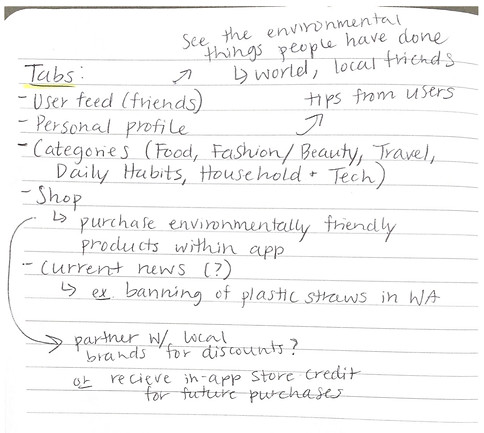 see the environmental
things people have done
↳ world, local friends
Tabs:
- User feed (friends)
tips from users
- Personal profile
- Categories (Food, Fashion/Beauty, Travel,
Daily Habits, Household + Tech)
- Shop
↳ purchase environmentally friendly
products within app
- Current news (?)
↳ ex. banning of plastic straws in WA
partner w/ local
brands for discounts?
or recieve in-app store credit
for future purchases